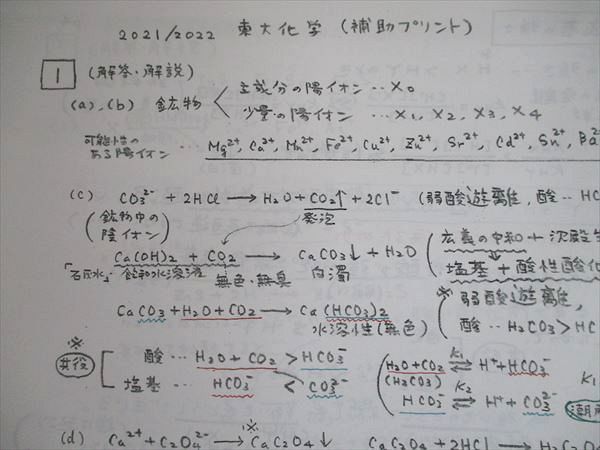 2021/2022 東大化学 (補助プリント)
1 (解答・解説)
(a),(b) 鉱物
主成分の陽イオン…X₀
少量の陽イオン…X₁, X₂, X₃, X₄
可能性のある陽イオン … Mg²⁺, Ca²⁺, Mn²⁺, Fe²⁺, Cu²⁺, Zn²⁺, Sr²⁺, Cd²⁺, Sn²⁺, Ba²⁺
(c) CO₃²⁻ + 2HCl → H₂O + CO₂↑ + 2Cl⁻ (弱酸遊離, 酸… HC
(鉱物中の陰イオン) 発泡
Ca(OH)₂ + CO₂ → CaCO₃↓ + H₂O
「石灰水」 飽和水溶液 無色・無臭 白濁
広義の中和 + 沈殿生
塩基 + 酸性酸化
CaCO₃ + H₂O + CO₂ → Ca(HCO₃)₂
水溶性(無色)
※ 弱酸遊離,
酸… H₂CO₃ > HC
※
共役
酸 … H₂O + CO₂ > HCO₃⁻
塩基 … HCO₃⁻ < CO₃²⁻
H₂O + CO₂ ⇄ H⁺ + HCO₃⁻ K₁
(H₂CO₃)
HCO₃⁻ ⇄ H⁺ + CO₃²⁻ K₂
K₁
(d) Ca²⁺ + C₂O₄²⁻ → CaC₂O₄↓ CaC₂O₄ + 2HCl → H₂C₂O
※